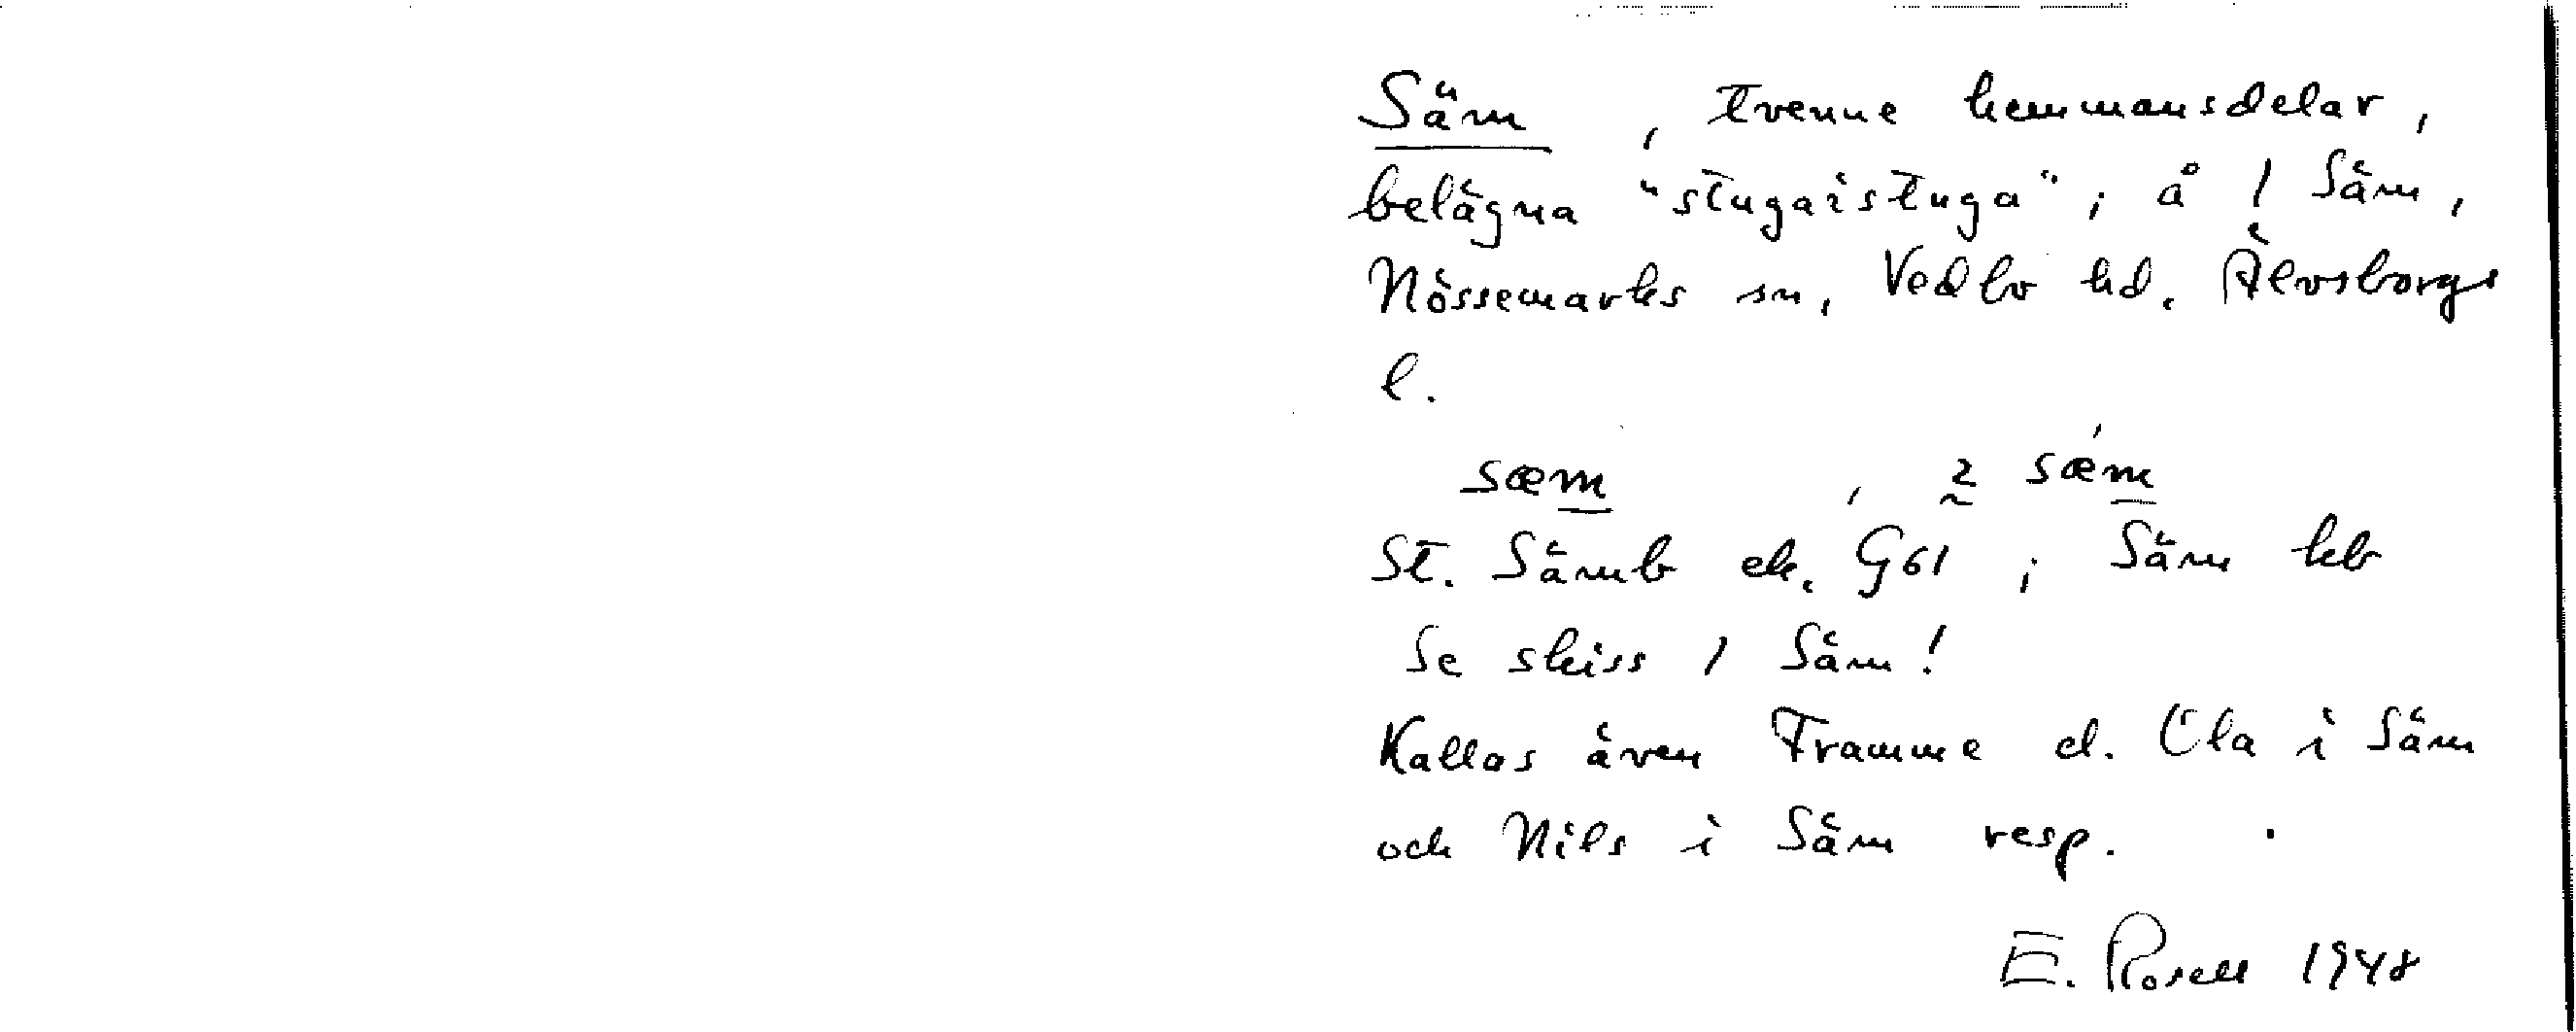 Säm , tvenne hemmansdelar,
belägna "stugaistuga", å 1 Säm,
Nössemarks sn, Vedbo hd. Älvsborgs
l.
sæm , 2 sǽm
St. Sämb ek. G61 ; Säm kb
Se skiss 1 Säm!
Kallas även Framme el. Ola i Säm
och Nils i Säm resp.
E. Rosell 1948